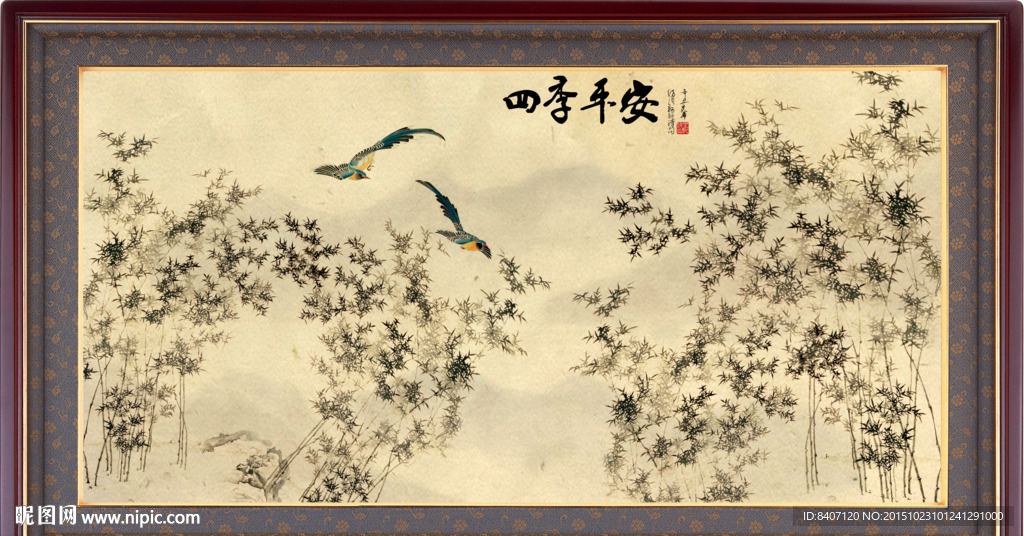 四季平安
昵图网 www.nipic.com
ID:8407120 NO:20151023101241291000